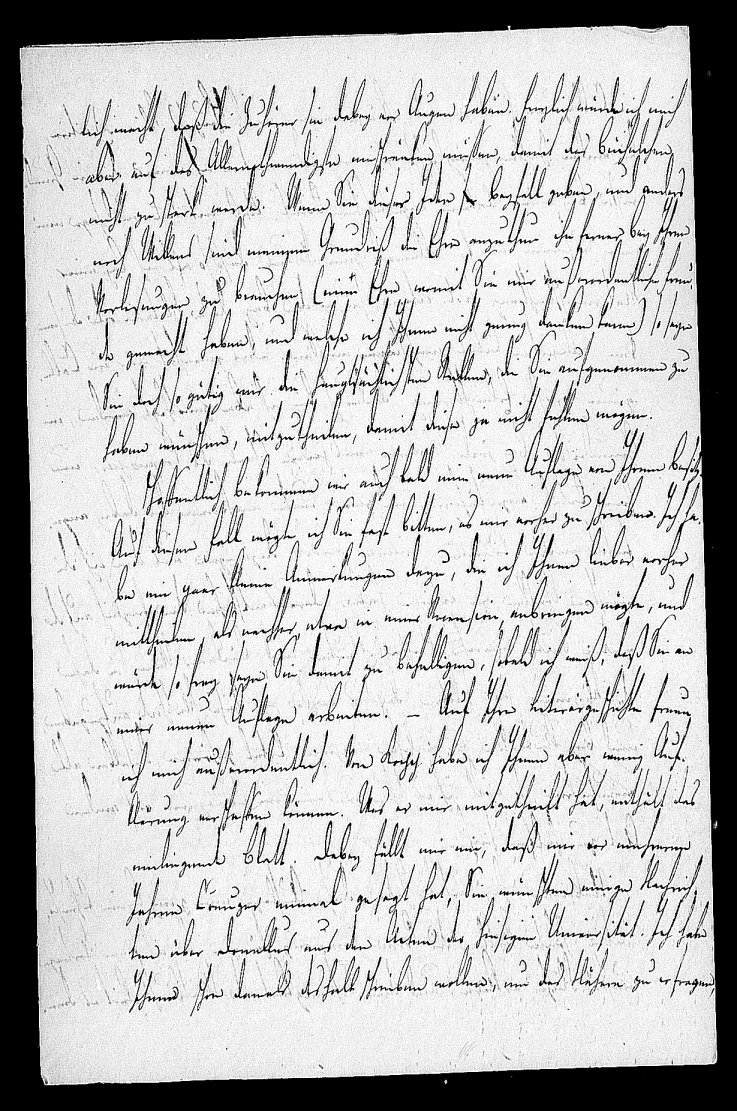 lich macht, daß die Zuhörer sie dabey vor Augen haben. Freylich würde ich mich
aber auf das Allernothwendigste einschränken müssen, damit das Büchelchen
nicht zu stark werde. Wenn Sie dieser Idee Beyfall geben, und anders
noch Willens sind meinem Grundriß die Ehre anzuthun ihn ferner bey Ihren
Vorlesungen zu brauchen (eine Ehre womit Sie mir außerordentliche Freu-
de gemacht haben, und welche ich Ihnen nicht genug danken kann) so seyn
Sie doch so gütig mir die hauptsächlichsten Stellen, die Sie aufgenommen zu
haben wünschen, mitzutheilen, damit diese ja nicht fehlen mögen.
Hoffentlich bekommen wir auch bald eine neue Auflage von Ihrem
Auf diesen Fall mögte ich Sie fast bitten, es mir vorher zu schreiben. Ich ha-
be ein paar kleine Anmerkungen dazu, die ich Ihnen lieber vorher
mittheilen, als nachher etwa in einer Recension anbringen mögte, und
würde so frey seyn Sie damit zu behelligen, sobald ich weiß, daß Sie an
einer neuen Auflage arbeiten. — Auf Ihre Literärgeschichte freue
ich mich außerordentlich. Von habe ich Ihnen aber wenig Auf-
klärung verschaffen können. Was er mir mitgetheilt hat, enthält das
einliegende Blatt. Dabey fällt mir ein, daß mir vor mehreren
Jahren Creuzer einmal gesagt hat, Sie wünschten einige Nachrich-
ten über Donellus aus den Acten der hiesigen Universität. Ich habe
Ihnen schon damals deshalb schreiben wollen, um das Nähere zu erfragen,